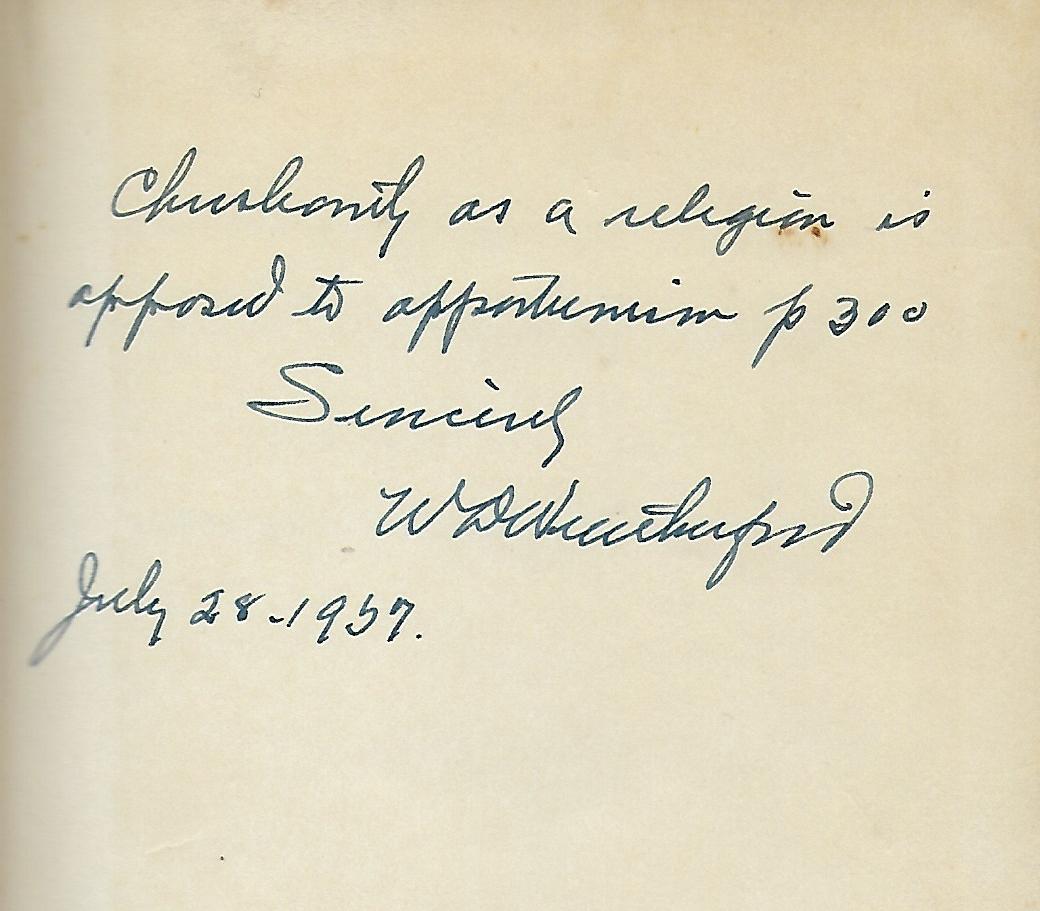 Christianity as a religion is
opposed to opportunism p 300
Sincerely
W D Weatherford
July 28-1957.